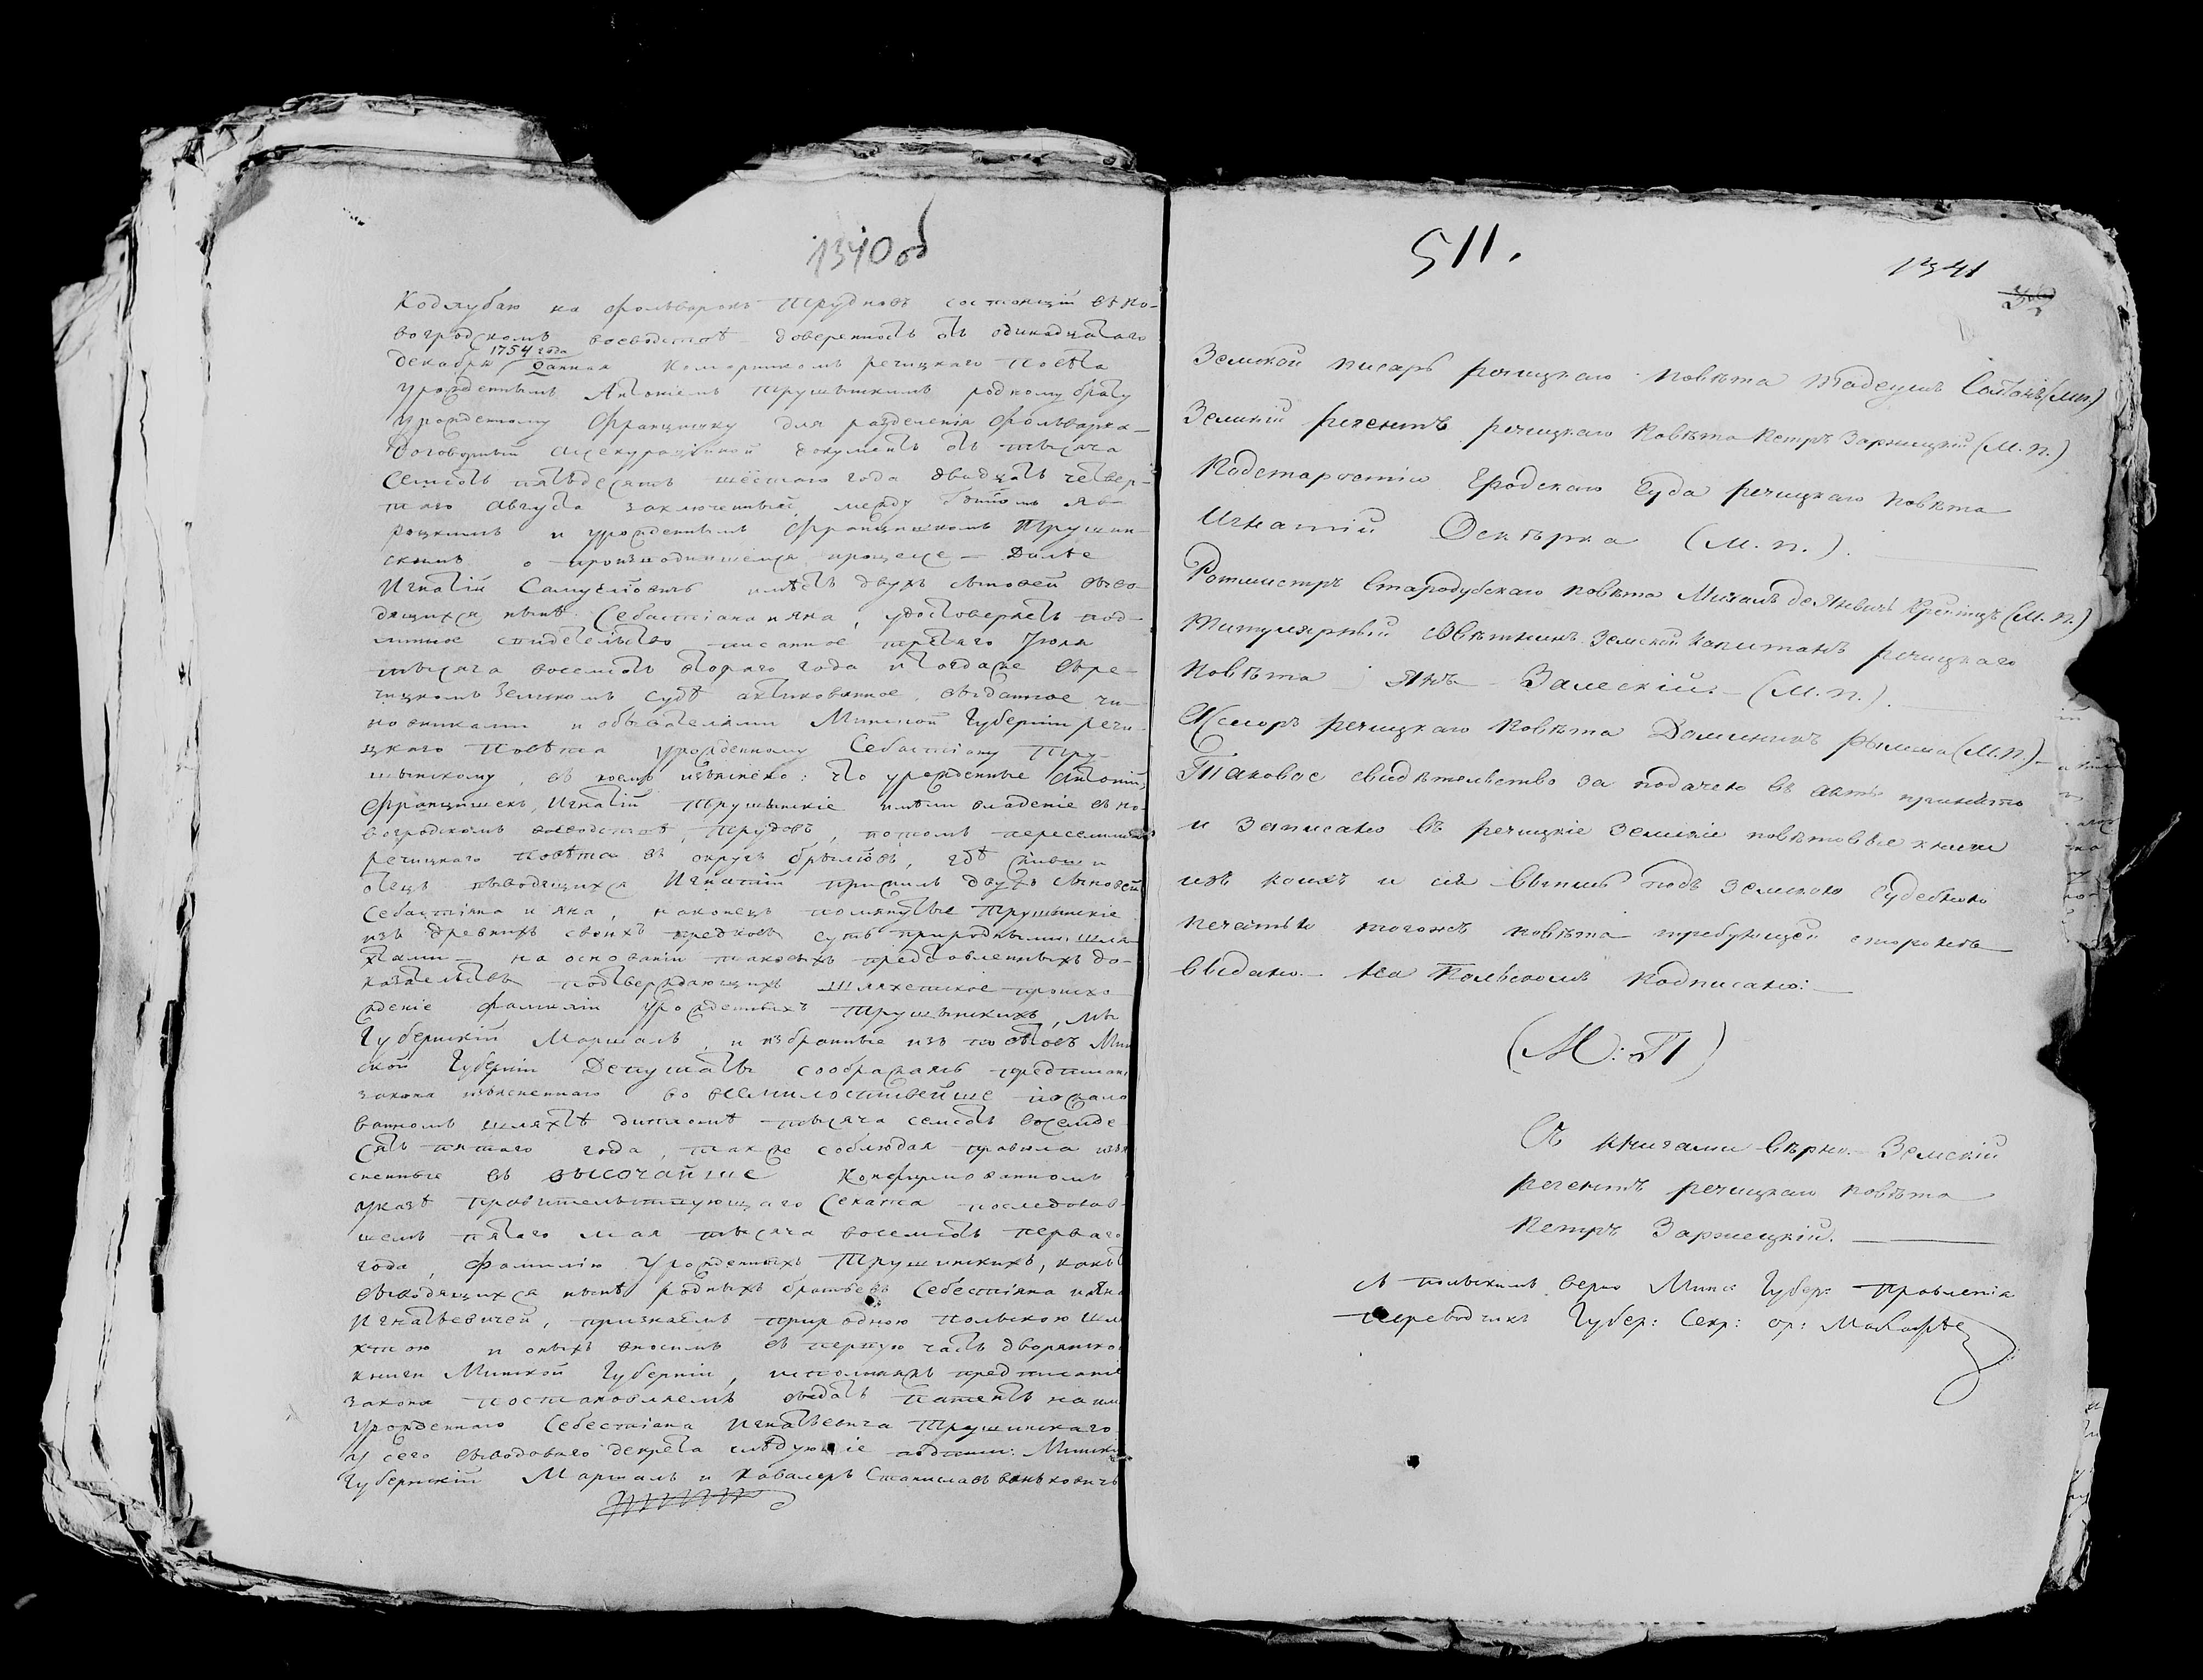 1340 об
Кодлубаю на фольварокъ Трудновъ состоящій въ Но-
вогродскомъ воеводствѣ доверенность отъ одинадцатаго
1754 года
декабря данная Коморникомъ речицкаго повѣта
урожденнымъ Антоніемъ Трушынскимъ родному брату
урожденному Францишку для разделенія фольварка—
Договорный Асекураційной документъ отъ тысяча
семьсотъ пятьдесятъ шестаго года двадцать четвер-
таго августа заключенный между
и урожденнымъ Францишкомъ Трушин-
скимъ о производившемся процесе — Далѣе
Игнатій Самуэліовичъ имѣлъ двухъ сыновей выво-
дящихся нынѣ Себастіана и Яна, удостоверяетъ под-
линное свидетельство писанное третяго Іюля
тысяча восемсотъ втораго года и тогда же въ ре-
чицкомъ Земскомъ судѣ актикованное, выданное чи-
новниками и обывателями Минской Губерніи речи-
цкаго Повѣта урожденному Себастіану Тру-
шынскому, въ коемъ изъяснено: что урожденные Антоній,
Францишекъ, Игнатій Трушынскіе имѣли владеніе въ Но-
вогродскомъ воеводствѣ, Трудовъ, потомъ переселились
речицкаго Повѣта въ округъ Брылiовъ, гдѣ живши
отецъ выводящихся Игнатій прижилъ двухъ сыновей
Себастіяна и Яна, наконецъ помянутые Трушынскіе
изъ древнихъ своихъ предковъ суть природными шлях-
тами — на основаніи таковыхъ представленныхъ до-
казательствъ подтверждающихъ шляхетское происхо-
жденіе фамиліи Урожденныхъ Трушынскихъ, мы
Губернскій Маршалъ, и избранные изъ повѣтовъ Мин
ской Губерніи Депутаты сообразяясь предписан
закона изъясненнаго во всемилостивейше пожало
ванномъ шляхтѣ дипломѣ тысяча семсотъ восемде
сятъ пятаго года, также соблюдая правила изъя
сненные въ высочайше Конфирмованномъ
указѣ правительствующаго Сената последовав-
шемъ пятаго мая тысяча восемсотъ перваго
года, фамилію Урожденныхъ Трушинскихъ, какъ
выводящихся нынѣ родныхъ братьевъ Себестіяна и Яна
Игнатьевичей, признаемъ природною польскою шля
хтою и оныхъ вносимъ въ первую часть дворянско
книги Минской Губерніи, исполняя предписаніе
закона постановляемъ выдать патентъ на им
Урожденнаго Себестіана Игнатьевича Трушинскаго
у сего выводоваго декрета слѣдующіе подписи: Мински
Губернскій Маршалъ и Кавалеръ Станиславъ Ваньковичъ
511.
1341
Земской писарь речицкаго повѣта Тадеушъ Солтанъ (М.п.)
Земскій регентъ речицкаго Повѣта Петръ Заржецкій (М.п.)
Подстаростій Гродскаго Суда речицкаго повѣта
Игнатій Осктырка (М.п.).
Ротмистръ Стародубскаго повѣта Михалъ (М.п.)
Титулярный Совѣтникъ Земскій Капитанъ речицкаго
повѣта Янъ Залескій: — (М.п.).
Асесоръ речицкаго повѣта Доминикъ Рылима (М.п.) —
Таковое свидѣтельство за подачею въ актъ принято
и записано въ речицкіе Земскіе повѣтовые книги
изъ коихъ и сія Выпись подъ Земскою Судебною
печатью тогожъ повѣта требующей сторонѣ
Выдано. — На Польскомъ Подписано: —
(М: П)
Съ книгами вѣрно. — Земскій
регентъ речицкаго повѣта
Петръ Заржецкій. —
съ польскимъ верно Минс: Губер: Правленія
переводчикъ Губер: Секр: